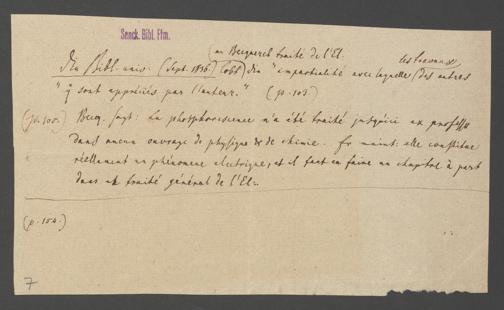 Senck. Bibl. Ffm.
an Becquerel traité de l'El.
Die Bibl. univ. (Sept. 1836) lobt die "impartialité avec laquelle les travaux des autres
"y sont appréciés par l'auteur." (p. 103)
(p. 105.) Becq. sagt: La phosphorescence n'a été traité jusqu'ici ex professo
dans aucun ouvrage de physique & de chimie. Or maint. elle constitue
réellement un phénomène électrique, et il faut en faire un chapitre à part
dans un traité général de l'El.
(p. 154.)
7